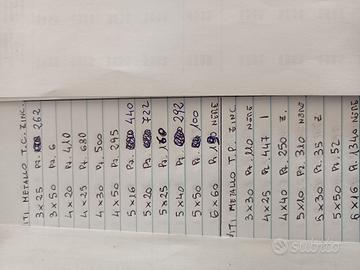 VITI METALLO T.C. ZINC.
3 x 25 Pz. 262
3 x 50 Pz. 6
4 x 20 Pz. 410
4 x 25 Pz. 680
4 x 30 Pz. 500
4 x 50 Pz. 295
5 x 16 Pz. 440
5 x 20 Pz. 722
5 x 25 Pz. 160
5 x 40 Pz. 292
5 x 50 Pz. 100
6 x 60 Pz. NERE
VITI METALLO T.P. ZINC.
3 x 30 Pz. 110 NERE
4 x 25 Pz. 447
4 x 40 Pz. 250 Z.
5 x 20 Pz. 310 NERE
5 x 30 Pz. 35 Z
5 x 50 Pz. 52
6 x 16 Pz. 134 NERE
Subito